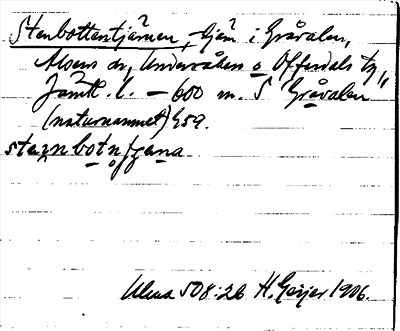 Stenbottentjärnen, tjärn i Gråvalen,
Alsens sn, Undersåkers o Offerdals tg,
Jämtl. l. — 600 m. S "Gråvalen"
(naturnamnet) 459.
stäinbotnʃjæna
Ulma 508:26 H. Geijer 1906.